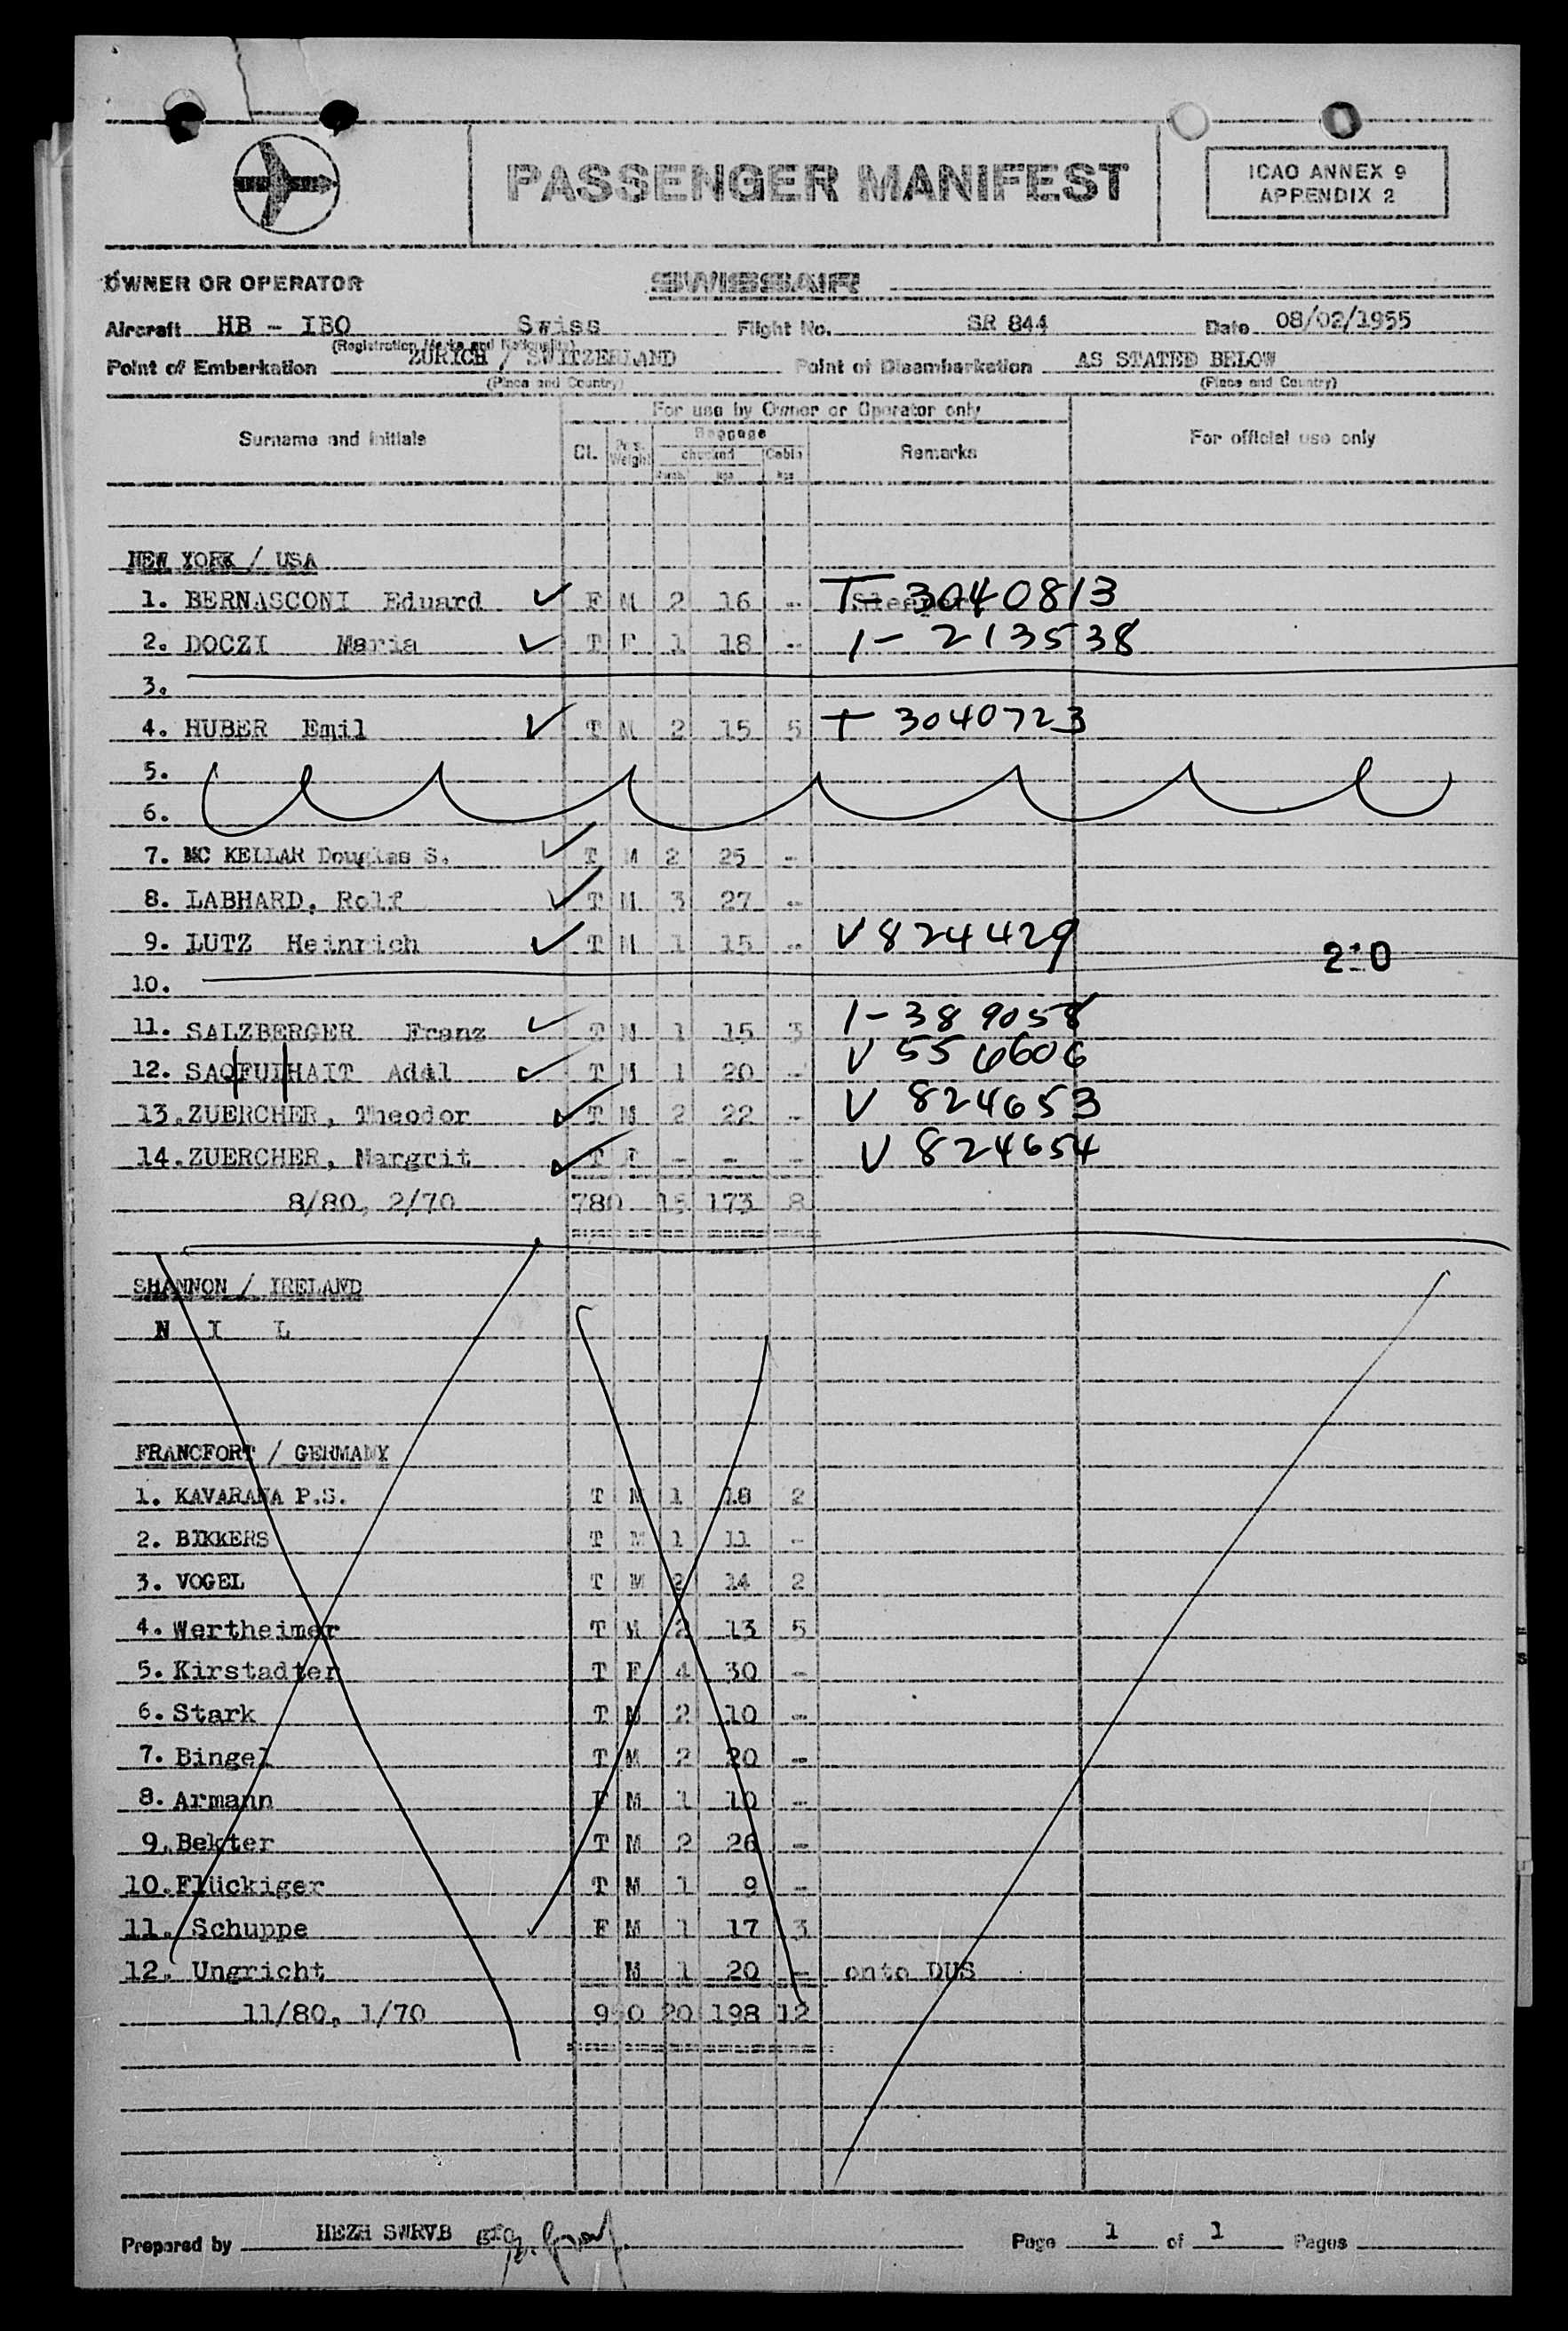 PASSENGER MANIFEST
ICAO ANNEX 9
APPENDIX 2
OWNER OR OPERATOR SWISSAIR
Aircraft HB - IBO Swiss Flight No. SR 844 Date 08/02/1955
(Registration Marks and Nationality)
Point of Embarkation ZURICH / SWITZERLAND Point of Disembarkation AS STATED BELOW
(Place and Country) (Place and Country)
For use by Owner or Operator only
Surname and initials Cl. Weight Baggage checked Cabin Remarks For official use only
kgs kgs
NEW YORK / USA
1. BERNASCONI Eduard ✓ F M 2 16 - T- 3040813
2. DOCZI Maria ✓ T F 1 18 - 1- 213538
3.
4. HUBER Emil ✓ T M 2 15 5 T 3040723
5.
6.
7. MC KELLAR Douglas S. ✓ T M 2 25 -
8. LABHARD, Rolf ✓ T M 3 27 -
9. LUTZ Heinrich ✓ T M 1 15 - V 824429
10.
11. SALZBERGER Franz ✓ T M 1 15 3 1- 389058
12. ✓ T M 1 20 - V 556606
13. ZUERCHER, Theodor ✓ T M 2 22 - V 824653
14. ZUERCHER, Margrit ✓ T F - - - V 824654
8/80, 2/70 780 15 173 8
SHANNON / IRELAND
N I L
FRANCFORT / GERMANY
1. KAVARANA P.S. T M 1 18 2
2. BIKKERS T M 1 11 -
3. VOGEL T M 2 14 2
4. Wertheimer T M 2 13 5
5. Kirstadter T F 4 30 -
6. Stark T M 2 10 -
7. Bingel T M 2 20 -
8. Armann F M 1 10 -
9. Bekter T M 2 26 -
10. Flückiger T M 1 9 -
11. Schuppe F M 1 17 3
12. Ungricht M 1 20 - onto DUS
11/80, 1/70 950 20 198 12
Prepared by HEZH SWRVB Page 1 of 1 Pages